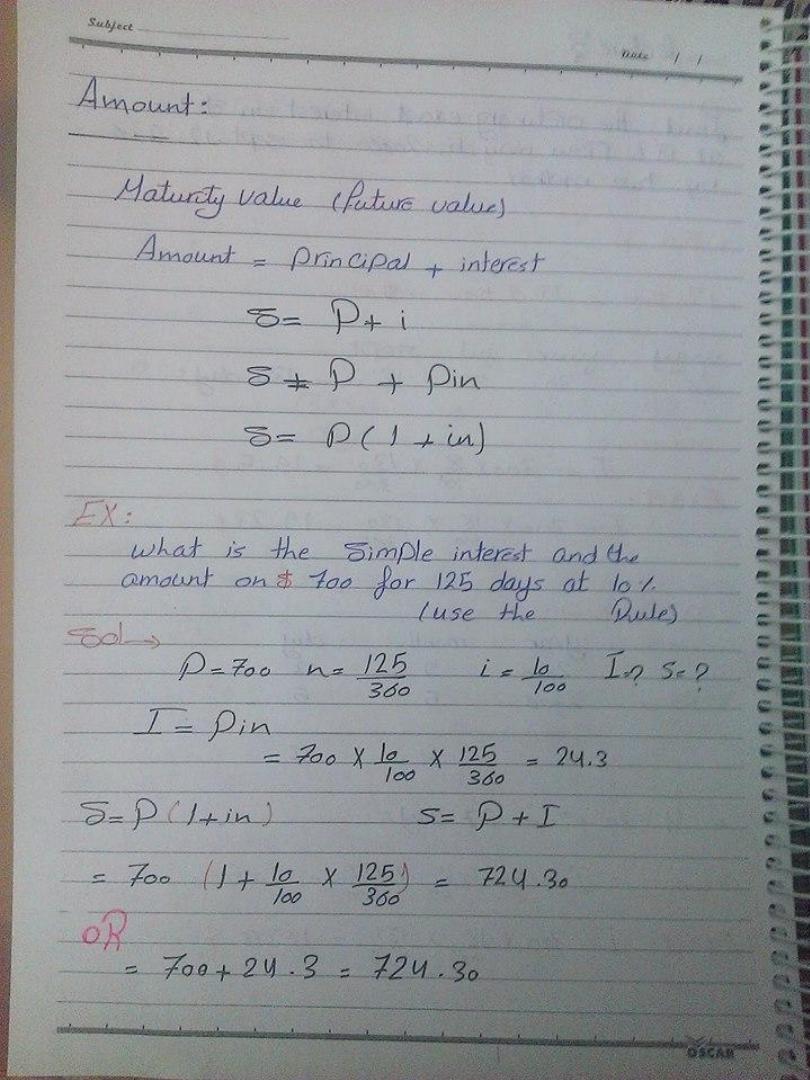 Subject
Date / /
Amount:
Maturity value (future value)
Amount = principal + interest
S = P + i
S ≠ P + Pin
S = P(1 + in)
EX:
what is the simple interest and the
amount on $ 700 for 125 days at 10%
(use the Rule)
Sol →
P = 700 n = 125/360 i = 10/100 I=? S=?
I = Pin
= 700 X 10/100 X 125/360 = 24.3
S = P(1+in) S = P + I
= 700 (1 + 10/100 X 125/360) = 724.30
OR
= 700 + 24.3 = 724.30
OSCAR